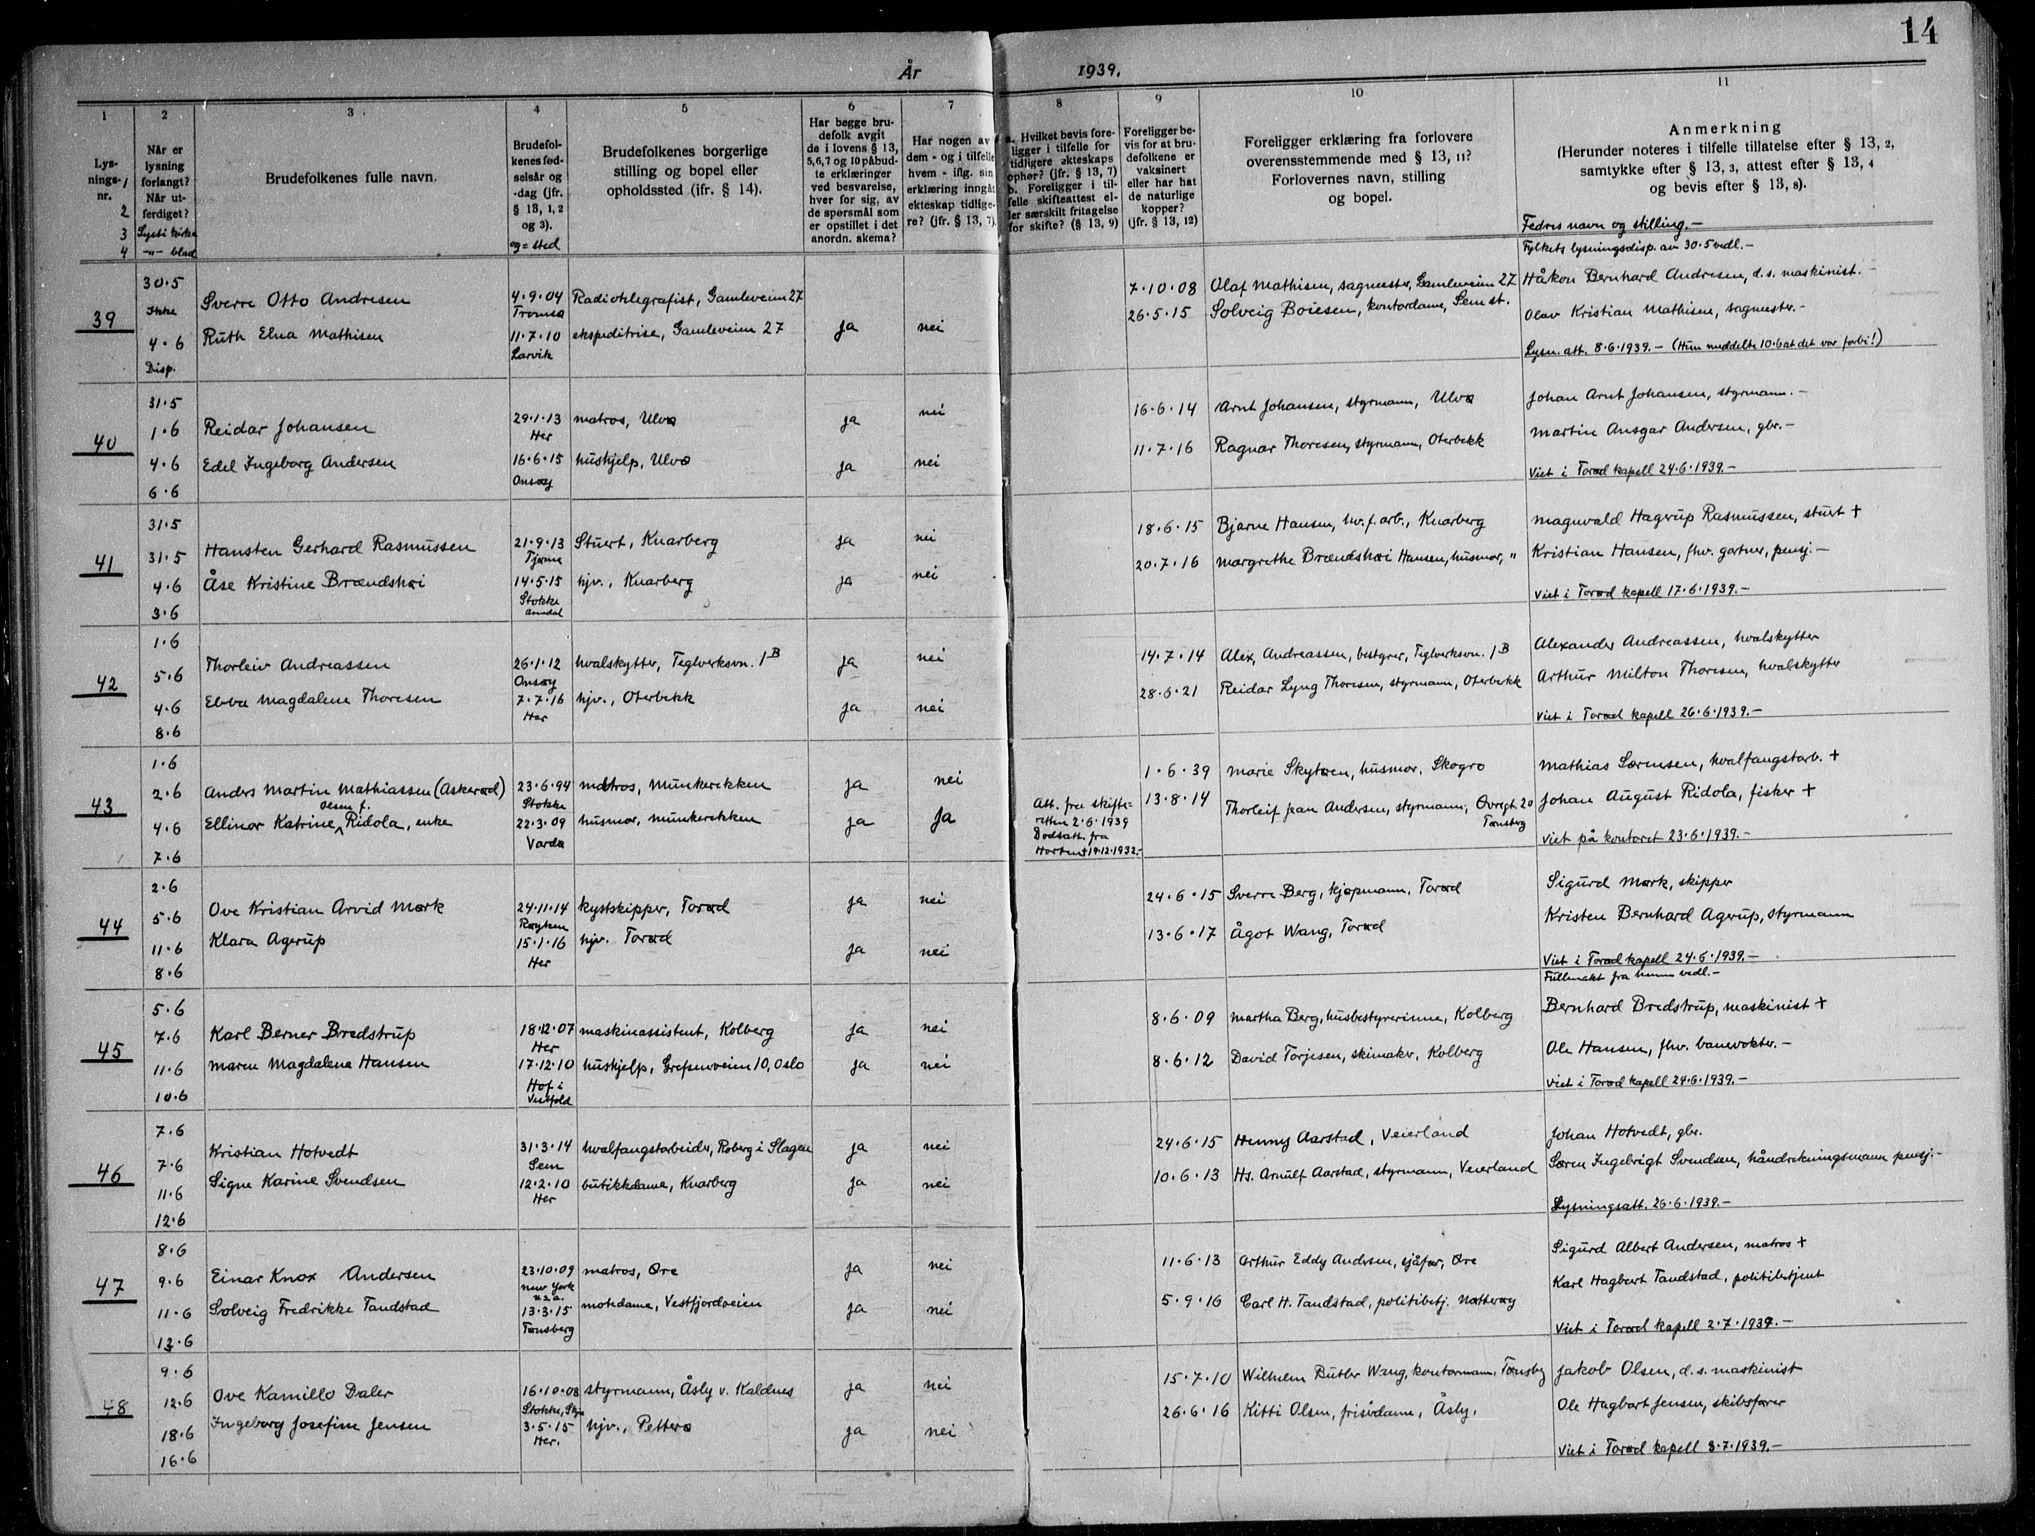 14
År 1939.
1 2 3 4 5 6 7 8 9 10 11
Lys-
nings-
nr.
1
2
3
4
Når er
lysning
forlangt?
Når ut-
ferdiget?
Lyst i kirke
-"- blad
Brudefolkenes fulle navn.
Brudefol-
kenes fød-
selsår og
-dag (jfr.
§ 13, 1, 2
og 3).
og = sted
Brudefolkenes borgerlige
stilling og bopel eller
opholdssted (jfr. § 14).
Har begge bru-
defolk avgit
de i lovens § 13,
5,6,7 og 10 påbud-
te erklæringer
ved besvarelse,
hver for sig, av
de spørsmål som
er opstillet i det
anordn. skema?
Har nogen av
dem - og i tilfelle
hvem - iflg. sin
erklæring inngått
ekteskap tidlige-
re? (jfr. § 13, 7).
a. Hvilket bevis fore-
ligger i tilfelle for
tidligere ekteskaps
ophør? (jfr. § 13, 7)
b. Foreligger i til-
felle skifteattest el-
ler særskilt fritagelse
for skifte? (§ 13, 9)
Foreligger be-
vis for at bru-
defolkene er
vaksinert
eller har hat
de naturlige
kopper?
(jfr. § 13, 12)
Foreligger erklæring fra forlovere
overensstemmende med § 13, 11?
Forlovernes navn, stilling
og bopel.
Anmerkning
(Herunder noteres i tilfelle tillatelse efter § 13, 2,
samtykke efter § 13, 3, attest efter § 13, 4
og bevis efter § 13, 8).
Fedres navn og stilling.-
39
30.5
Ikke
4.6
Disp.
Sverre Otto Andresen
Ruth Elna Mathisen
4.9.04
Tromsø
11.7.10
Larvik
Radiotelegrafist, Gamleveien 27
ekspeditrise, Gamleveien 27
ja
nei
7.10.08
26.5.15
Olaf Mathisen, sagmester, Gamleveien 27
Solveig Boiesen, kontordame, Sem st.
Fylkets lysningsdisp. av 30.5 vedl.-
Håkon Bernhard Andresen, d.s. maskinist.-
Olav Kristian Mathisen, sagmester.-
Lysn.att. 8.6.1939.- (Hun meddelte 10.6 at det var forbi!)
40
31.5
1.6
4.6
6.6
Reidar Johansen
Edel Ingeborg Andersen
29.1.13
Her
16.6.15
Onsøy
matros, Ulvø
hushjelp, Ulvø
ja
ja
nei
nei
16.6.14
11.7.16
Arnt Johansen, styrmann, Ulvø
Ragnar Thoresen, styrmann, Oterbekk
Johan Arnt Johansen, styrmann.-
Martin Ansgar Andersen, gbr.-
Viet i Torød kapell 24.6.1939.-
41
31.5
31.5
4.6
3.6
Hansten Gerhard Rasmussen
Åse Kristine Brændshøi
21.9.13
Tjøme
14.5.15
Stokke
Arendal
Stuert, Knarberg
hjv., Knarberg
ja
ja
nei
nei
18.6.15
20.7.16
Bjarne Hansen, hv.f.arb., Knarberg
Margrethe Brændshøi Hansen, husmor, "
Magnvald Hagerup Rasmussen, stuert +
Kristian Hansen, fhv. gartner, pensj.-
Viet i Torød kapell 17.6.1939.-
42
1.6
5.6
4.6
8.6
Thorleiv Andreassen
Ebba Magdalene Thoresen
26.1.12
Onsøy
7.7.16
Her
hvalskytter, Teglverksvn. 1B
hjv., Oterbekk
ja
ja
nei
nei
14.7.14
28.6.21
Alex. Andreassen, bestyrer, Teglverksvn. 1B
Reidar Lyng Thoresen, styrmann, Oterbekk
Alexander Andreassen, hvalskytter
Arthur Milton Thoresen, hvalskytter
Viet i Torød kapell 26.6.1939.-
43
1.6
2.6
4.6
7.6
Anders Martin Mathiassen (Askerød)
Ellinor Katrine Ridola, enke
23.6.94
Stokke
22.3.09
Vardø
matros, Munkerekken
husmor, Munkerekken
ja
ja
nei
Ja
Att. fra skifte-
retten 2.6.1939
Dødsatt. fra
Horten + 19.12.1932.-
1.6.39
13.8.14
Marie Skytøen, husmor, Skogro
Thorleif Jean Andersen, styrmann, Øvregt 20
Tønsberg
Mathias Sørensen, hvalfangstarb. +
Johan August Ridola, fisker +
Viet på kontoret 23.6.1939.-
44
2.6
5.6
11.6
8.6
Ove Kristian Arvid Mørk
Klara Agerup
24.11.14
Røyken
15.1.16
Her
kystskipper, Torød
hjv. Torød
ja
ja
nei
nei
24.6.15
13.6.17
Sverre Berg, kjøpmann, Torød
Ågot Wang, Torød
Sigurd Mørk, skipper
Kristen Bernhard Agerup, styrmann
Viet i Torød kapell 24.6.1939.-
Fullmakt fra henne vedl.-
45
5.6
7.6
11.6
10.6
Karl Berner Bredstrup
Maren Magdalene Hansen
18.12.07
Her
17.12.10
Hof i
Vestfold
maskinassistent, Kolberg
hushjelp, Grefsenveien 10, Oslo
ja
ja
nei
nei
8.6.09
8.6.12
Martha Berg, husbestyrerinne, Kolberg
David Torjesen, skimaker, Kolberg
Bernhard Bredstrup, maskinist +
Ole Hansen, fhv. banevokter.-
Viet i Torød kapell 24.6.1939.-
46
7.6
7.6
11.6
12.6
Kristian Hotvedt
Signe Karine Svendsen
31.3.14
Sem
12.2.10
Her
hvalfangstarbeider, Roberg i Slagen
butikkdame, Knarberg
ja
ja
nei
nei
24.6.15
10.6.13
Henny Aarstad, Veierland
Hs. Arnulf Aarstad, styrmann, Veierland
Johan Hotvedt, gbr.
Søren Ingebrigt Svendsen, håndrekningsmann pensj.-
Lysningsatt. 26.6.1939.-
47
8.6
9.6
11.6
13.6
Einar Knox Andersen
Solveig Fredrikke Tandstad
23.10.09
New York
U.S.A.
13.3.15
Tønsberg
matros, Øre
motedame, Vestfjordveien
ja
ja
nei
nei
11.6.13
5.9.16
Arthur Eddy Andersen, sjåfør, Øre
Carl H. Tandstad, politibetj. Nøtterøy
Sigurd Albert Andersen, matros +
Karl Hagbart Tandstad, politibetjent
Viet i Torød kapell 2.7.1939.-
48
9.6
12.6
18.6
16.6
Ove Kamillo Daler
Ingeborg Josefine Jensen
16.10.08
Stokke,
3.5.15
Her.
styrmann, Åsly v. Kaldnes
hjv., Petterø
ja
ja
nei
nei
15.7.10
26.6.16
Wilhelm Butler Wang, kontormann, Tønsbg
Kitti Olsen, frisørdame, Åsly.
Jakob Olsen, d.s. maskinist
Ole Hagbart Jensen, skibsfører
Viet i Torød kapell 8.7.1939.-